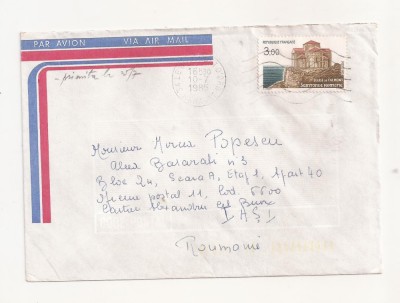 PAR AVION VIA AIR MAIL
REPUBLIQUE FRANÇAISE
3,00
primită le
Monsieur Popescu
Aleea Basarabi nº 3
Bloc 24, Scara A, Etaj 1, Apart 40
Oficiul postal 11, Cod 6600
Cartier Alexandru cel Bun
IAŞI
Roumanie